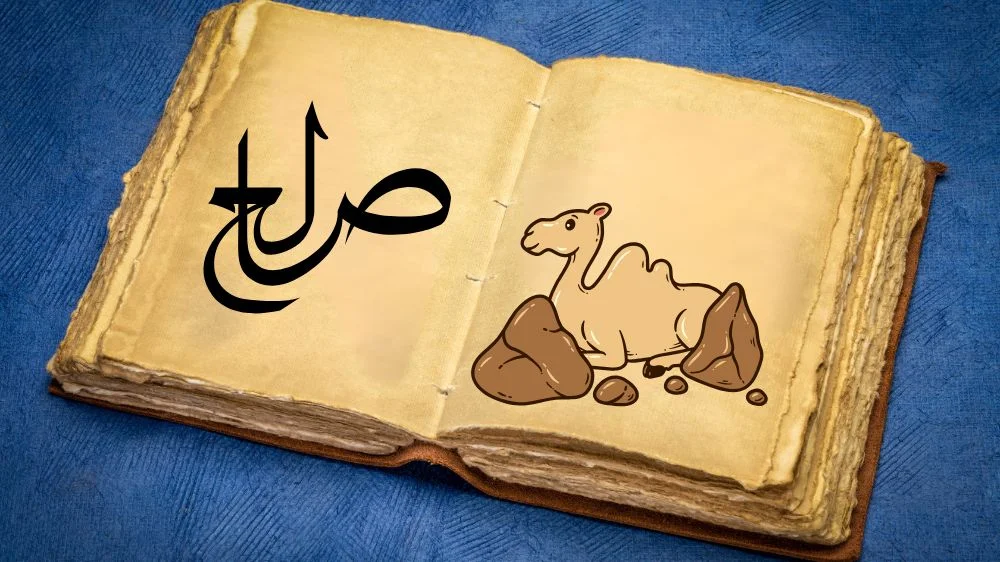 صالح